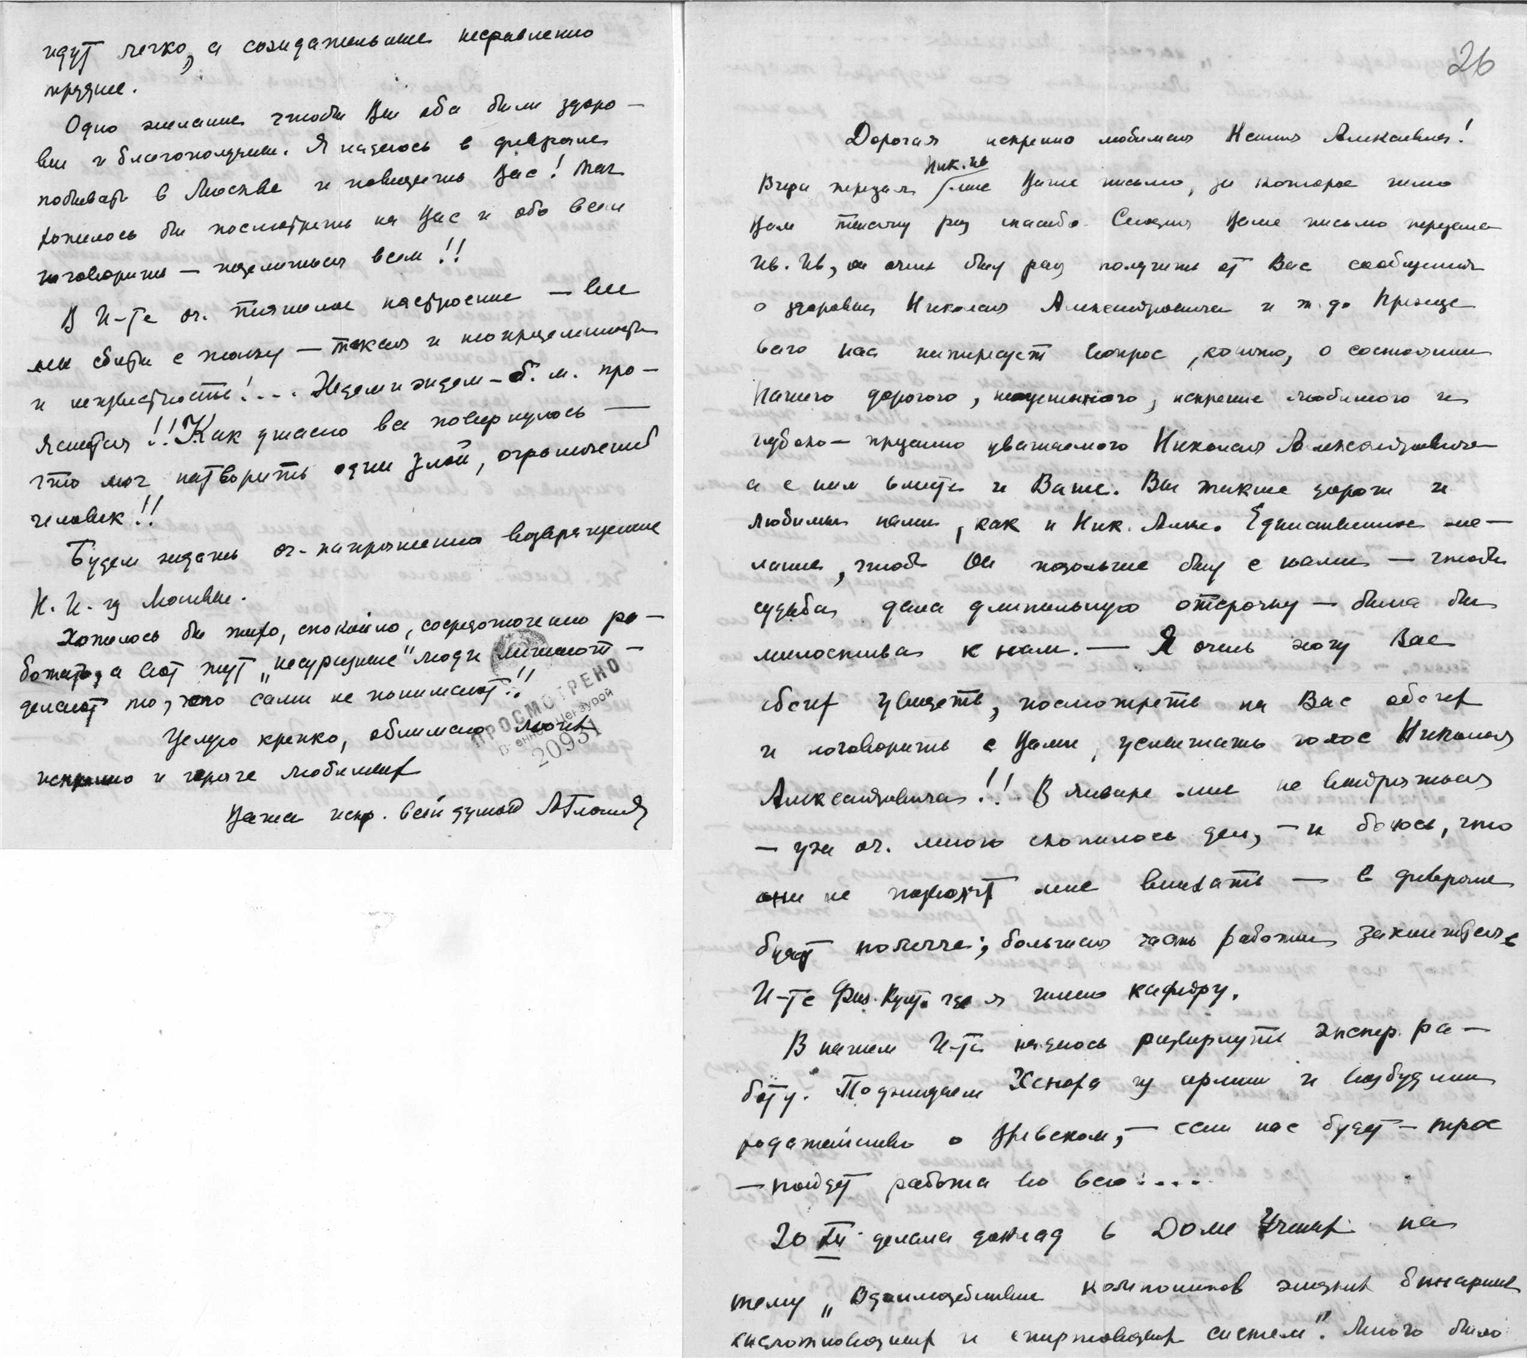 идут легко, а созидательные несравненно
труднее.
Одно желание чтобы Вы оба были здоро-
вы и благополучны. Я надеюсь в феврале
побывать в Москве и повидать Вас! Так
хотелось бы посмотреть на Вас и обо всем
поговорить — поделиться всем!!
В И-те оч. тяжелое настроение — все
мы сбиты с толку — такая и неопределенность
и неизвестность!... Ждем и ждем — б. м. про-
яснится!! Как ужасно все повернулось —
что мог натворить один злой, ограниченный
человек!!
Будем ждать оч. напряженно возвращения
Н. И. из Москвы.
Хотелось бы тихо, спокойно, сосредоточенно ра-
ботать, а вот тут „несуразные" люди мешают —
делают то, что сами не понимают!!
ПРОСМОТРЕНО
Военной Цензурой
20931
Целую крепко, обнимаю моих
искренно и горячо любимых
Ваша искр. всей душой
26
Дорогая искренно любимая Алексеевна!
Вчера передал Ник. Ив. мне Ваше письмо, за которое шлю
Вам тысячу раз спасибо. Сегодня Ваше письмо передала
Ив. Ив, он очень был рад получить от Вас сообщения
о здоровье Николая Александровича и т. д. Прежде
всего нас интересует вопрос, конечно, о состоянии
нашего дорогого, искренне любимого и
глубоко — преданно уважаемого Николая Александровича
а с ним вместе и Ваше. Вы также дороги и
любимы нами, как и Ник. Алек. Единственное же-
лание, чтобы Он подольше был с нами — чтобы
судьба дала длительную отсрочку — была бы
милостива к нам. — Я очень хочу Вас
обоих увидеть, посмотреть на Вас обоих
и поговорить с Вами, услышать голос Николая
Александровича!! В январе мне не выбраться
— уж оч. много скопилось дел, — и боюсь, что
они не позволят мне выехать — в феврале
будет полегче; большая часть работы закончится в
И-те Физ. Культ. где я имею кафедру.
В нашем И-те надеюсь развернуть экспер. ра-
боту. Поджидаем из армии и возбудили
ходатайство о — если нас будет — трое
— пойдет работа во всю!...
20 XII делала доклад в Доме Ученых на
тему „Взаимодействие компонентов жидких бинарных
кислотноводных и спиртоводных систем". Много было